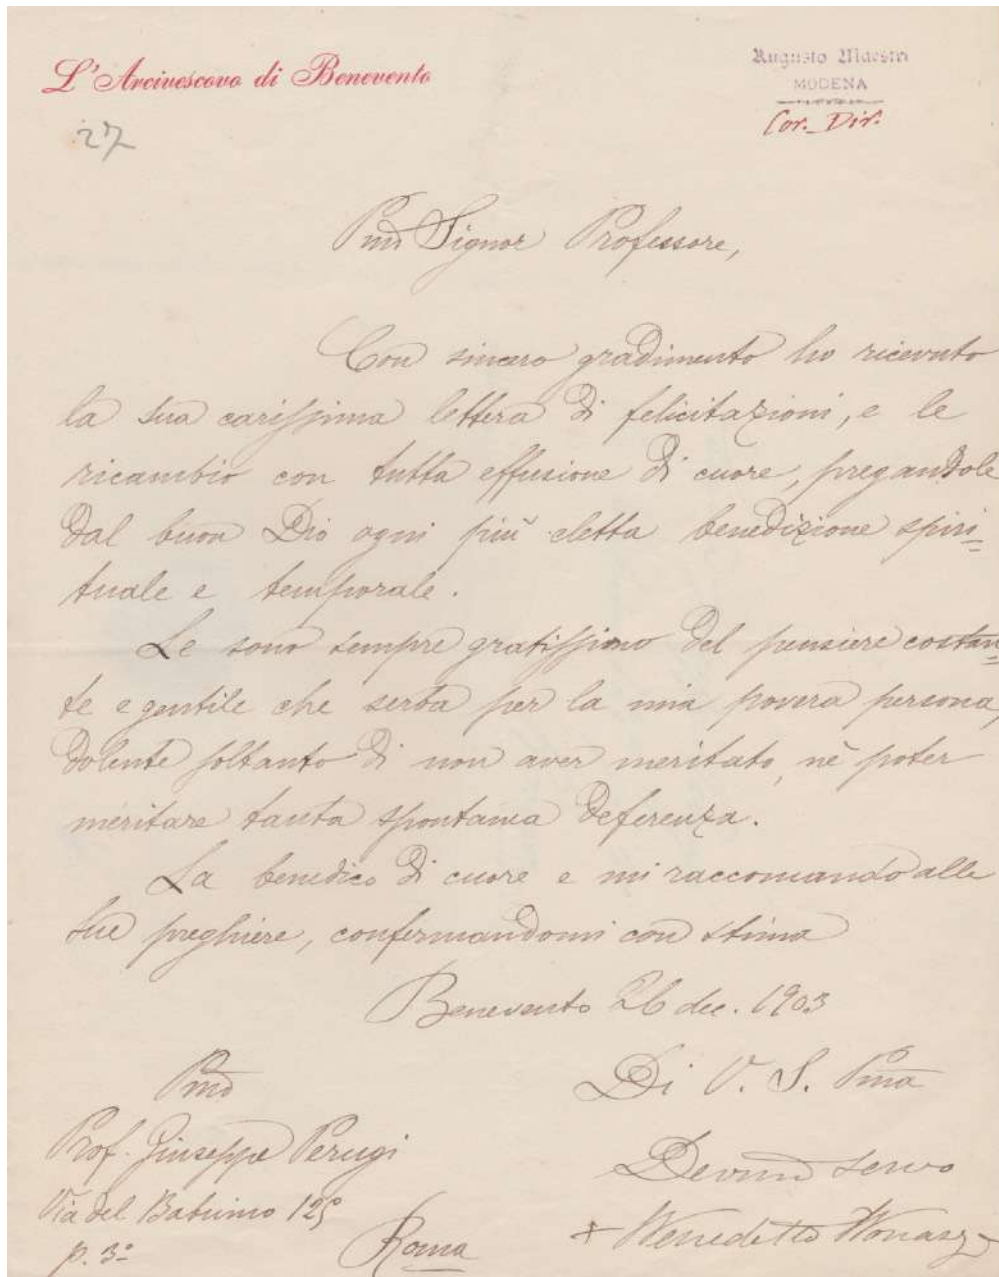 L'Arcivescovo di Benevento
Augusto Maestri
MODENA
Cor. Dir.
27
Pmo Signor Professore,
Con sincero gradimento ho ricevuto
la sua carissima lettera di felicitazioni, e le
ricambio con tutta effusione di cuore, pregandole
dal buon Dio ogni più eletta benedizione spiri=
tuale e temporale.
Le sono sempre gratissimo del pensiere costan=
te e gentile che serba per la mia povera persona,
dolente soltanto di non aver meritato, nè poter
meritare tanta spontanea deferenza.
La benedico di cuore e mi raccomando alle
sue preghiere, confermandomi con stima
Benevento 26 dec. 1903
Di V. S. Pma
Devmo servo
+ Benedetto
Pmo
Prof. Giuseppe Perugi
Via del Babuino 125
p. 3º
Roma